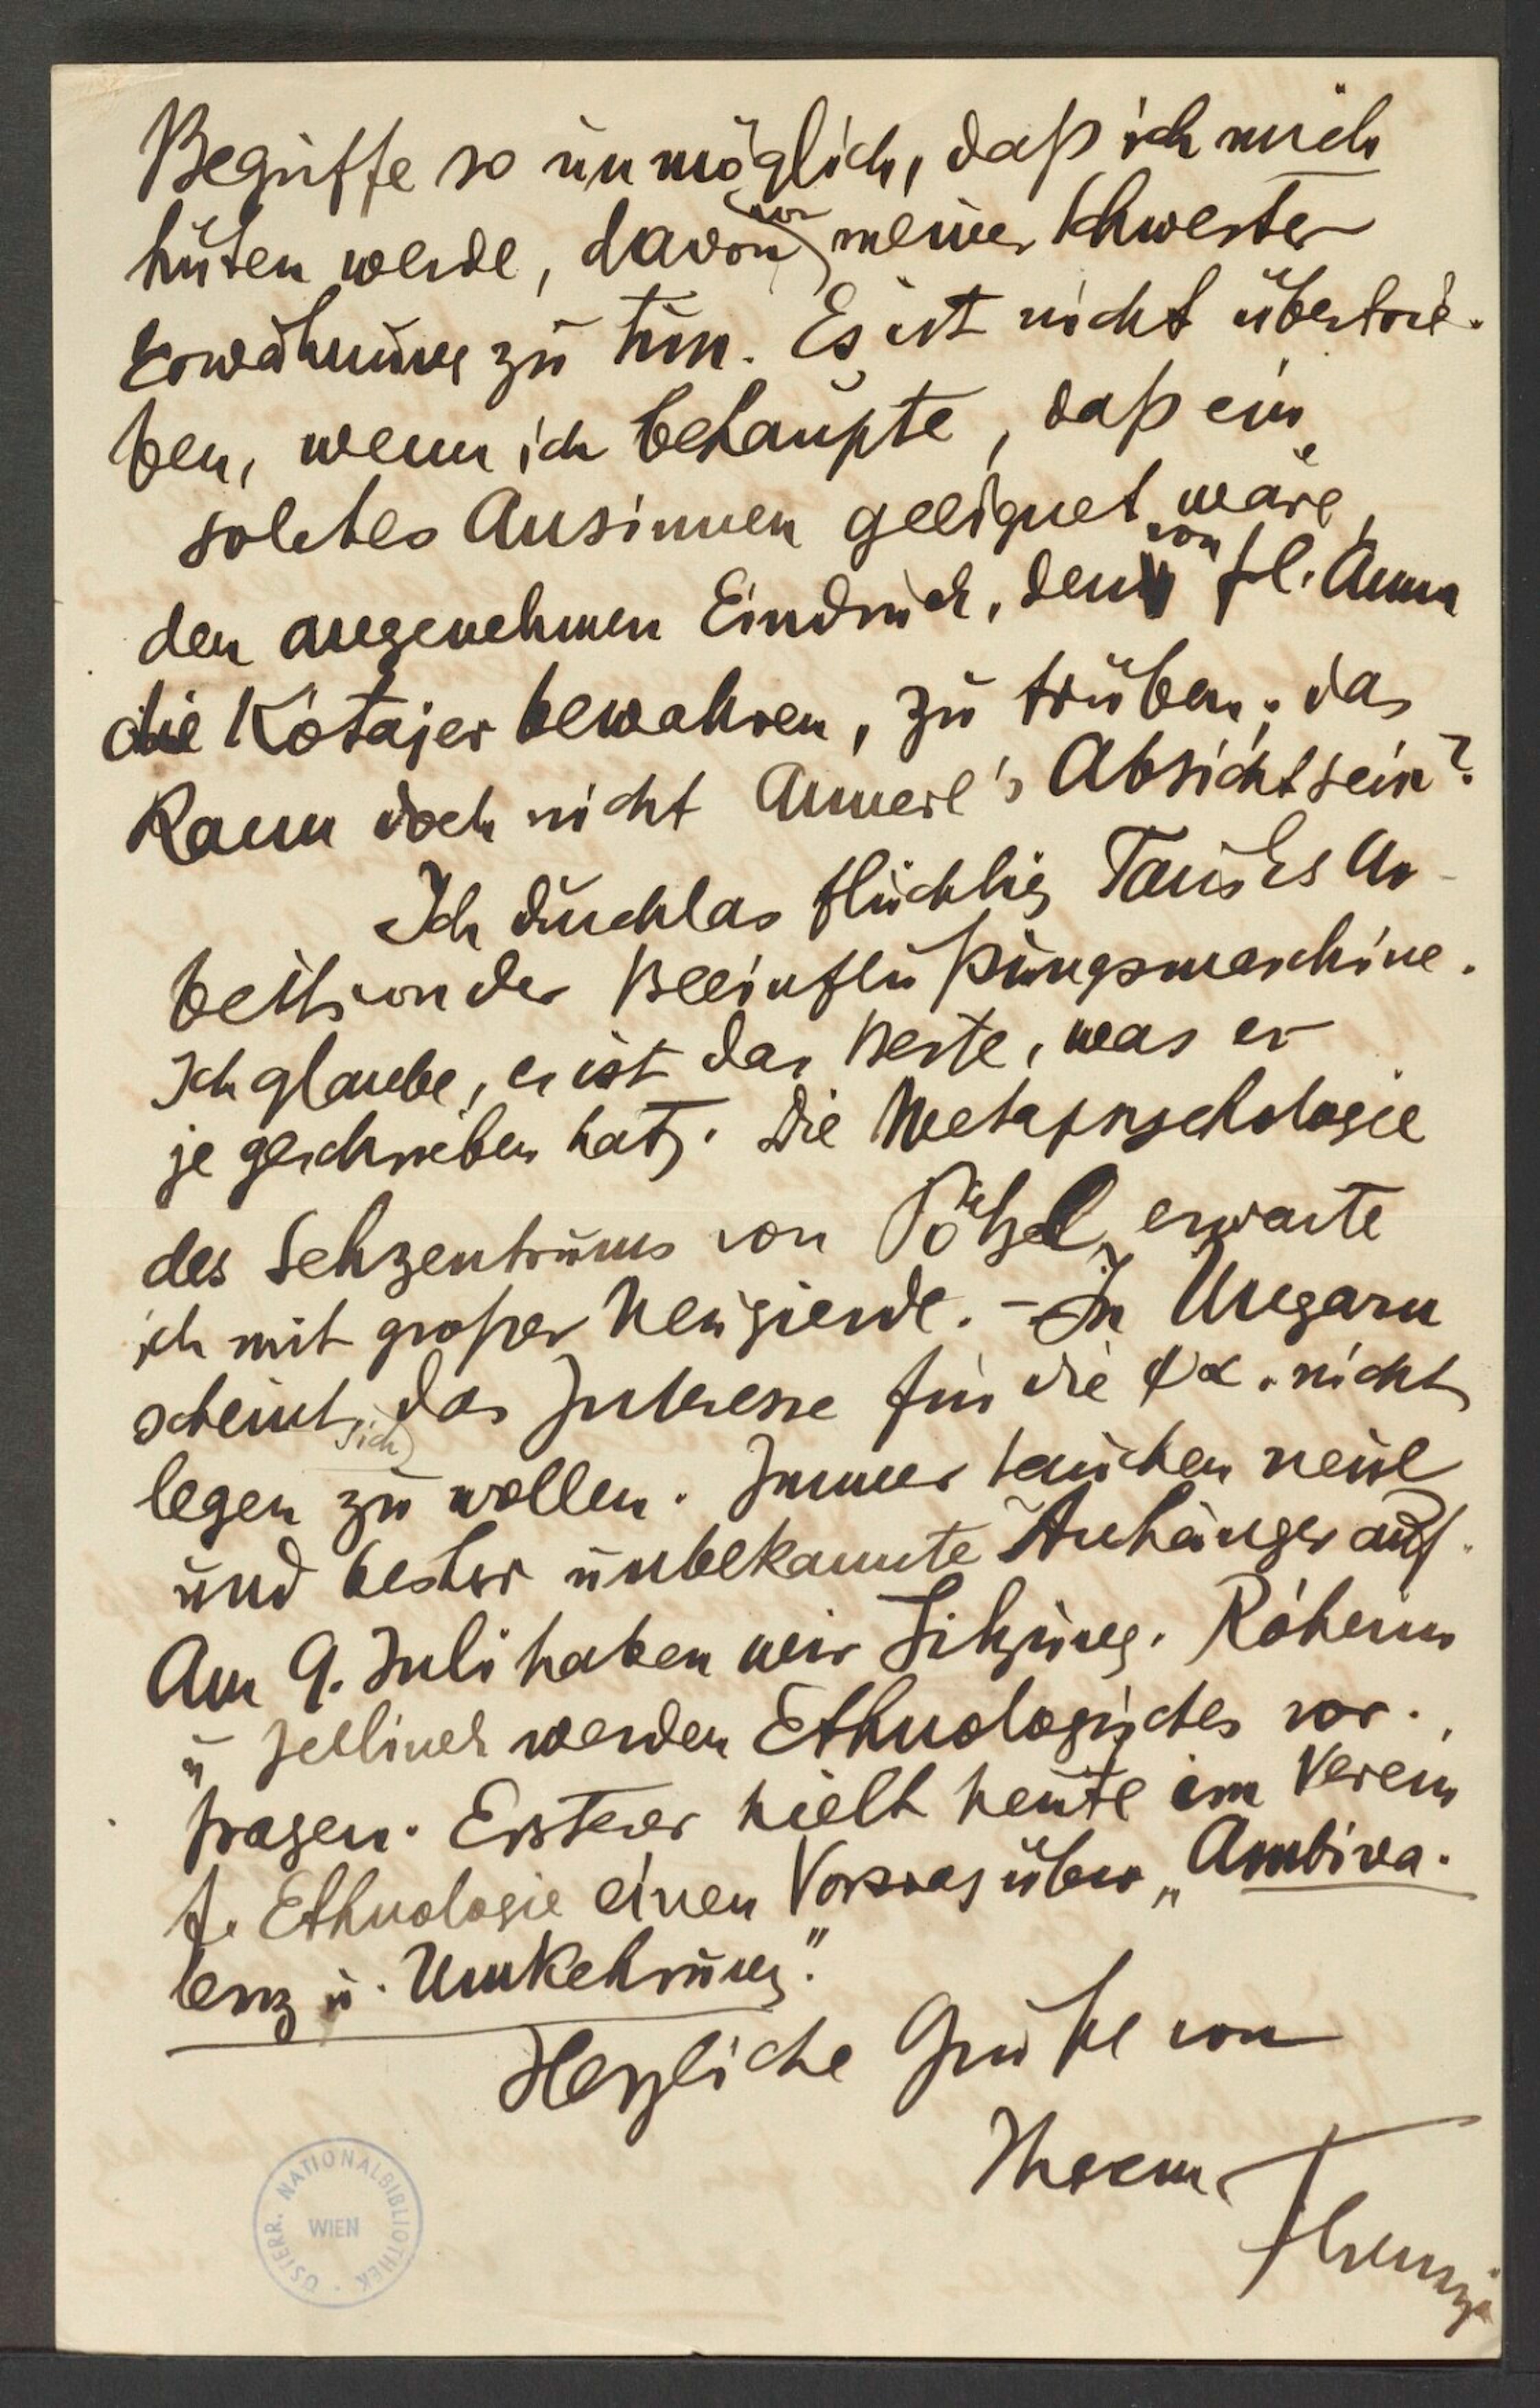 Begriffe so unmöglich, daß ich mich
hüten werde, davon vor meiner Schwester
Erwähnung zu tun. Es ist nicht übertrie-
ben, wenn ich behaupte, daß ein
solches Ansinnen geeignet wäre,
den angenehmen Eindruck, den von Frl. Anna
die Kótajer bewahren, zu trüben; das
kann doch nicht Annerl's Absicht sein?
Ich durchlas flüchtig Tausks Ar-
beit von der Beeinflußungsmaschine.
Ich glaube, es ist das Beste, was er
je geschrieben hat. Die Metapsychologie
des Sehzentrums von Pötzl erwarte
ich mit großer Neugierde. – In Ungarn
scheint sich das Interesse für die ψα. nicht
legen zu wollen. Immer tauchen neue
und bisher unbekannte Anhänger auf.
Am 9. Juli haben wir Sitzung. Róheim
u Jellinek werden Ethnologisches vor-
tragen. Ersterer hielt heute im Verein
f. Ethnologie einen Vortrag über „Ambiva-
lenz u. Umkehrung".
Herzliche Grüße von
Ihrem
Ferenczi
ÖSTERR. NATIONALBIBLIOTHEK · WIEN